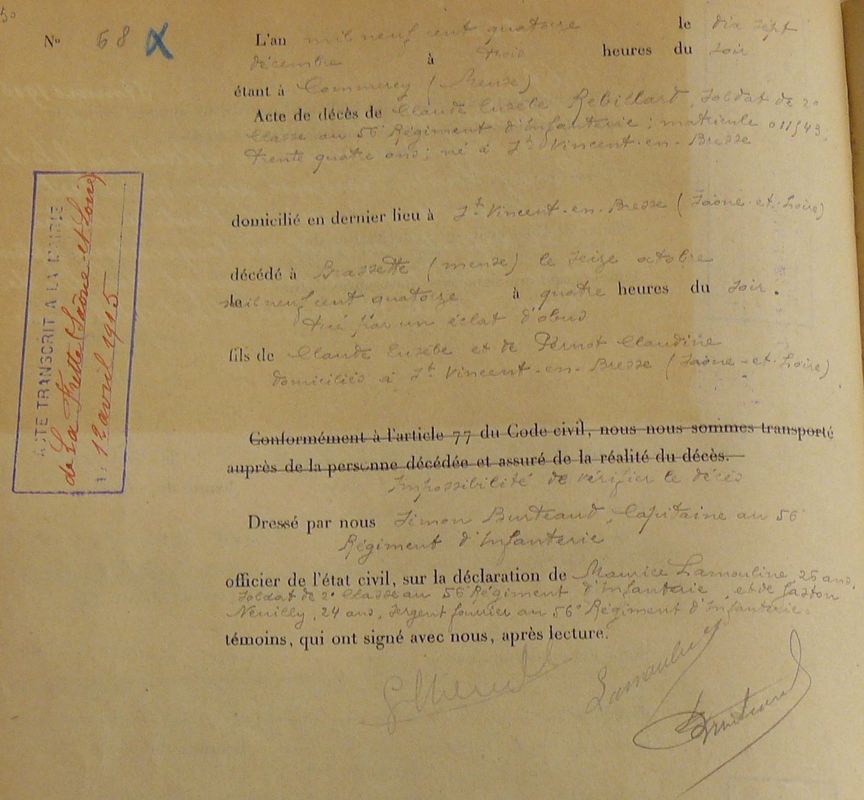 50
N° 68 X
L'an mil neuf cent quatorze le dix sept
décembre à trois heures du soir
étant à Commercy (Meuse)
Acte de décès de Claude Eusèbe Rebillard, soldat de 2e
classe au 56 Régiment d'Infanterie; matricule 011549;
trente quatre ans; né à St Vincent-en-Bresse
domicilié en dernier lieu à St Vincent-en-Bresse (Saône-et-Loire)
décédé à Brassette (meuse) le seize octobre
mil neuf cent quatorze à quatre heures du soir.
tué par un éclat d'obus
fils de Claude Eusèbe et de Pernot Claudine
domiciliés à St Vincent-en-Bresse (Saône-et-Loire)
Conformément à l'article 77 du Code civil, nous nous sommes transporté
auprès de la personne décédée et assuré de la réalité du décès.
Impossibilité de vérifier le décès
Dressé par nous Simon Burteaud, Capitaine au 56
Régiment d'Infanterie
officier de l'état civil, sur la déclaration de Maurice Lamouline, 25 ans,
soldat de 2e classe au 56 Régiment d'Infanterie et de Gaston
Neuilly, 24 ans, sergent fourrier au 56e Régiment d'Infanterie.
témoins, qui ont signé avec nous, après lecture.
Lamouline
Burteaud
ACTE TRANSCRIT A LA MAIRIE
de La Frette (Saône-et-Loire)
12 avril 1915